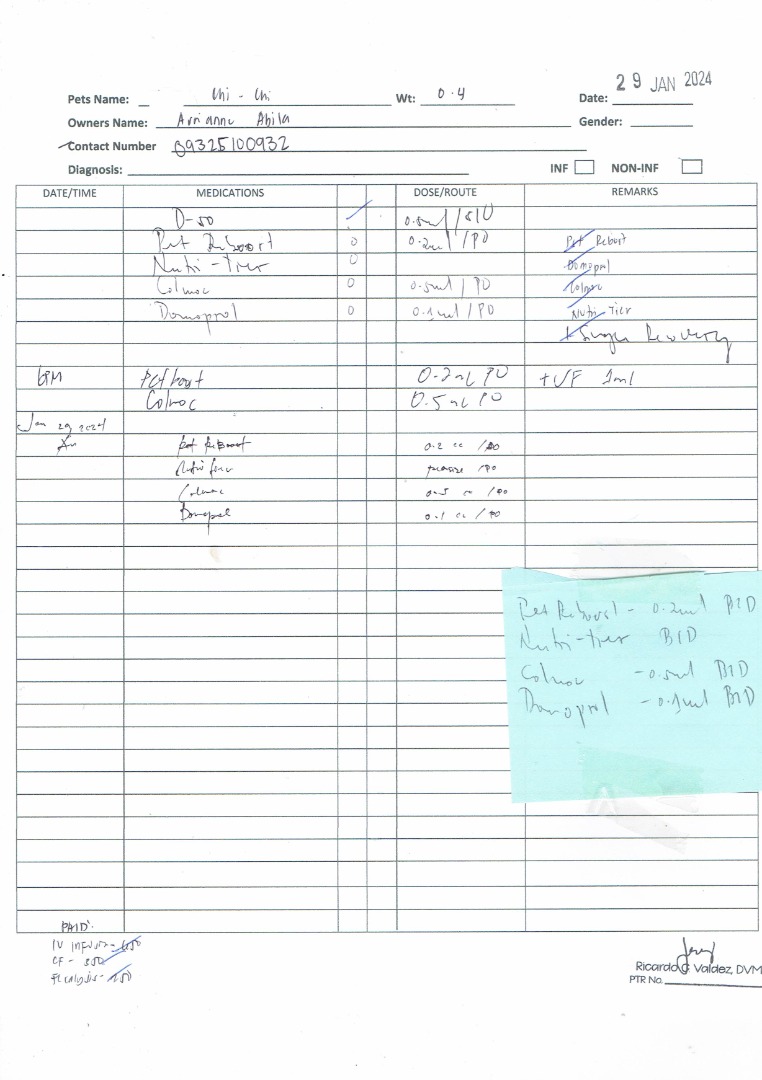 29 JAN 2024
Pets Name: Chi - Chi Wt: 0.4 Date:
Owners Name: Arianne Abila Gender:
Contact Number 09325100932
Diagnosis: INF NON-INF
DATE/TIME MEDICATIONS DOSE/ROUTE REMARKS
D-50 0.5ml / SIU
Pet Reboost 0 0.2ml / PO Pet Reboost
Nutri-Tier 0 Domopol
Colmoc 0 0.5ml / PO Colmoc
Domoprol 0 0.1ml / PO Nutri-Tier
+ Single Recovery
6PM Pet boost 0.2ml PO +UF 1ml
Colmoc 0.5ml PO
Jan 29, 2024
Pet Reboost 0.2 cc / PO
Nutri tier / PO
Colmoc 0.5 cc / PO
Domopol 0.1 cc / PO
Pet Reboost - 0.2ml BID
Nutri-tier BID
Colmoc - 0.5ml BID
Domoprol - 0.1ml BID
PAID:
IV infusion -
CF - 350
Fecalysis -
Ricardo G. Valdez, DVM
PTR No.